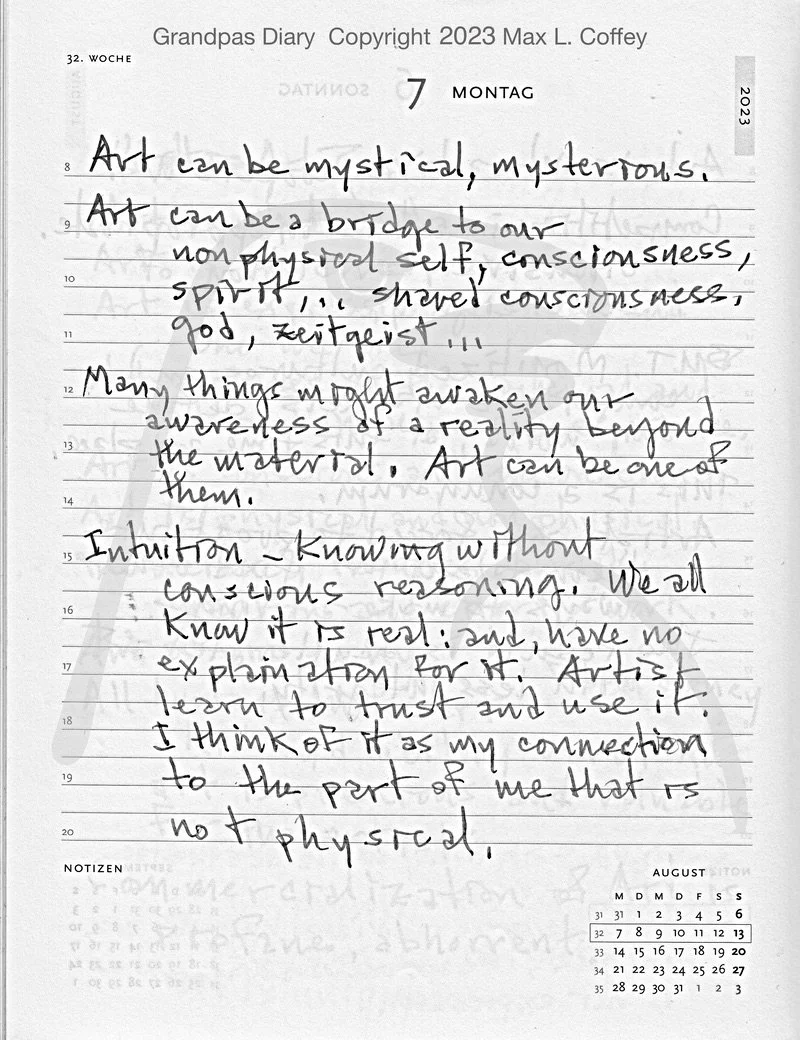 Grandpas Diary Copyright 2023 Max L. Coffey
32. WOCHE
7 MONTAG
2023
8 Art can be mystical, mysterious.
9 Art can be a bridge to our
nonphysical self, consciousness,
10 spirit,... shared consciousness,
11 god, zeitgeist...
12 Many things might awaken our
awareness of a reality beyond
13 the material. Art can be one of
14 them.
15 Intuition - Knowing without
conscious reasoning. We all
16 Know it is real: and, have no
17 explaination for it. Artist
learn to trust and use it.
18 I think of it as my connection
19 to the part of me that is
20 not physical.
NOTIZEN
AUGUST
M D M D F S S
31 31 1 2 3 4 5 6
32 7 8 9 10 11 12 13
33 14 15 16 17 18 19 20
34 21 22 23 24 25 26 27
35 28 29 30 31 1 2 3